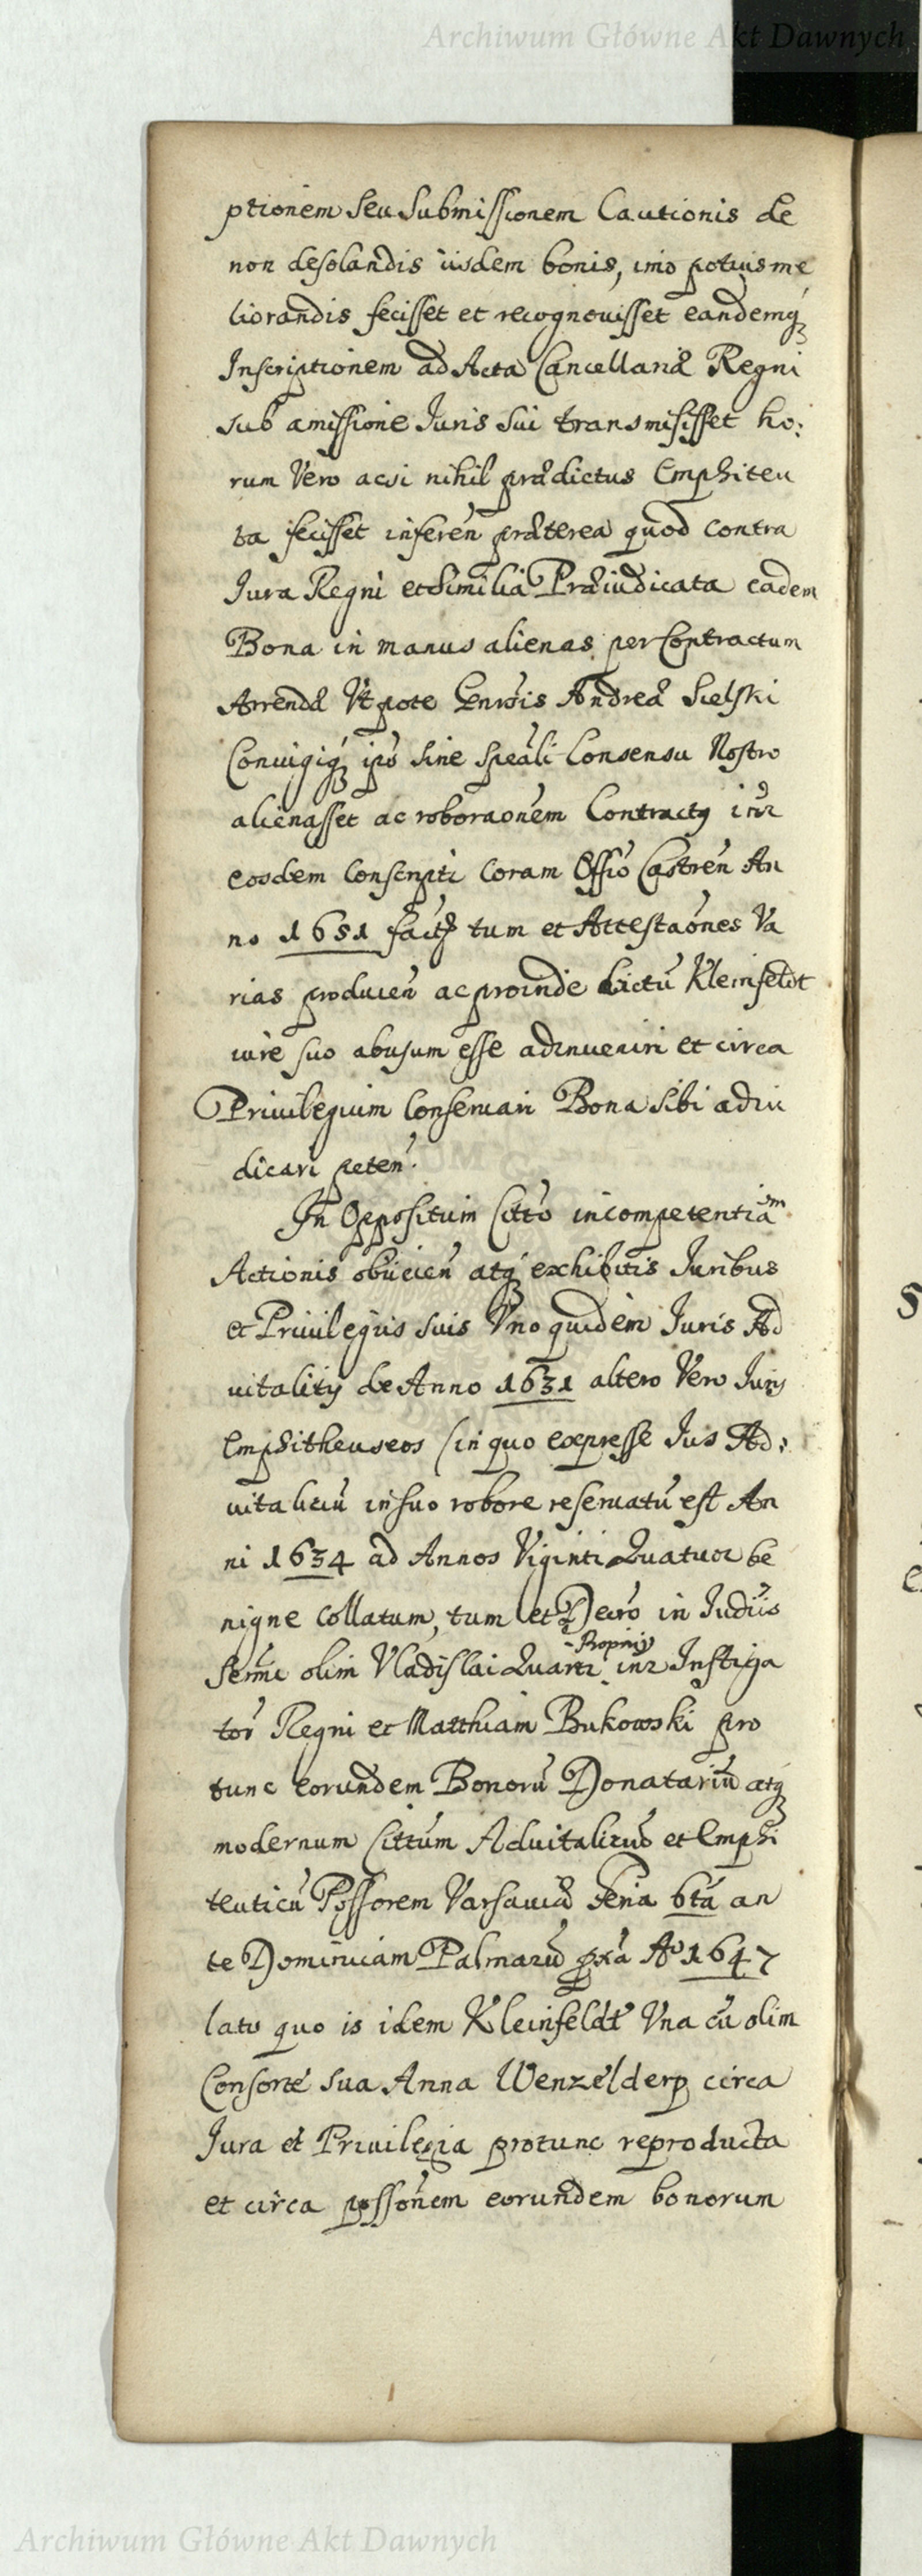 Archiwum Główne Akt Dawnych
ptionem seu submissionem Cautionis de
non desolandis iisdem bonis, imo potius me
liorandis fecisset et recognouisset eandemq₃
Inscriptionem ad Acta Cancellariæ Regni
sub amissione Juris sui transmisisset ho:
rum Vero acsi nihil prædictus Emphiteu
ta fecisset inferen̄ præterea quod contra
Jura Regni et similia Præiudicata eadem
Bona in manus alienas per Contractum
Arrendæ Vt pote Gn̄rosis Andreæ Sielski
Coniugiq₃ ip̄o sine speāli Consensu Nostro
alienasset ac roboraōnem Contractq inr̄
eosdem conscripti coram Offo̅ Castren̄ An
no 1651 factę tum et Attestaōnes Va
rias producen̄ ac proinde dictū Kleinfeldt
iure suo abusum esse adinueniri et circa
Priuilegium conseruari Bona sibi adiu
dicari peten̄.
In Oppositum Citt̄o incompetentiam
Actionis obiicien̄ atq₃ exhibitis Juribus
et Priuilegiis suis Vno quidem Juris Ad
uitalitij de Anno 1631 altero Vero Juris
Emphitheuseos (in quo expresse Jus Ad:
uitalitiū in suo robore reseruatū est An
ni 1634 ad Annos Viginti Quatuor be
nigne collatum, tum et Decr̄o in Judiīs
Serm̄i olim Vladislai Quarti Propriis inr̄ Instiga
tor̄ Regni et Matthiam Bukowski pro
tunc eorundem Bonorū Donatariū atq₃
modernum Citt̄um Aduitalitiū et Emphi
teuticū Possorem Varsauiæ Feria 6tā an
te Dominicam Palmarū prox̄a A° 1647
lato quo is idem Kleinfeldt Vna cū olim
Consorte sua Anna Wenzelderp circa
Jura et Priuilegia protunc reproducta
et circa posso̅nem eorundem bonorum
Archiwum Główne Akt Dawnych